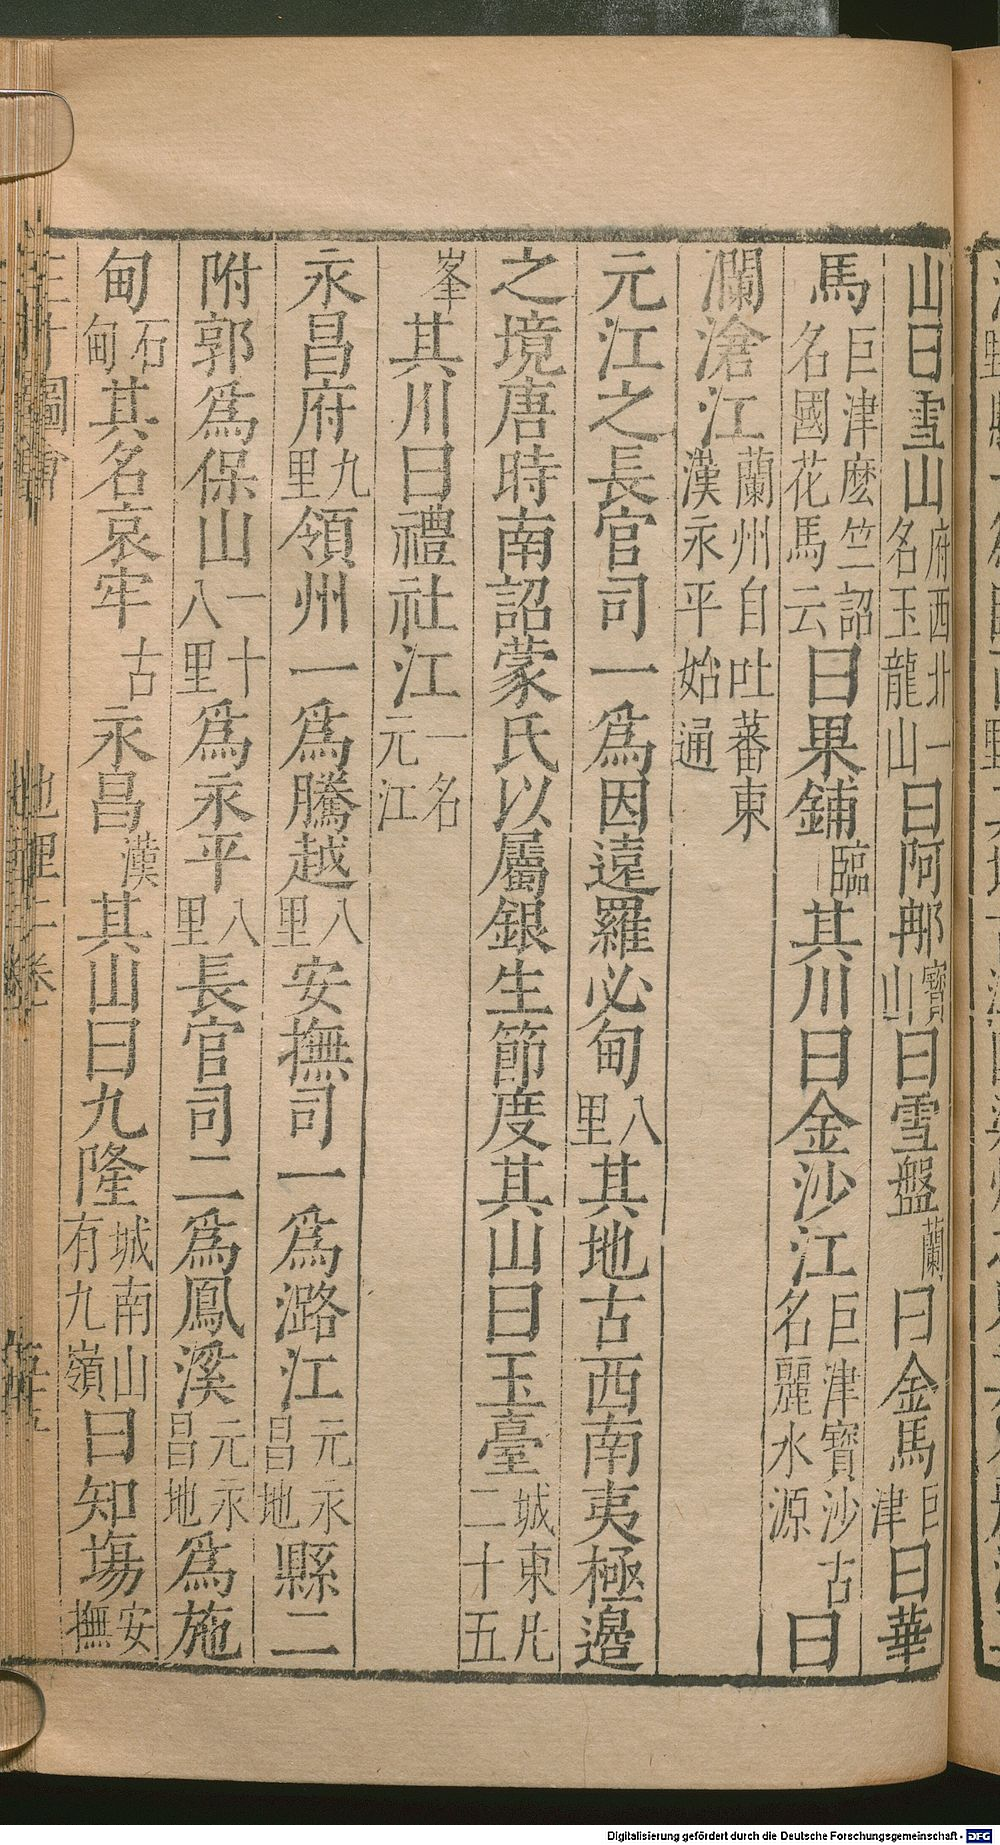 山曰雪山府西北一名玉龍山曰阿那寶山曰雪盤蘭曰金馬巨津曰華
馬巨津麽竺詔名國花馬云曰果鋪臨其川曰金沙江巨津寶沙古名麗水源曰
瀾滄江蘭州自吐蕃東漢永平始通
元江之長官司一爲因遠羅必甸八里其地古西南夷極邉
之境唐時南詔蒙氏以屬銀生節度其山曰玉臺城東凡二十五
峯其川曰禮社江一名元江
永昌府九里領州一爲騰越八里安撫司一爲潞江元永昌地縣二
附郭爲保山一十八里爲永平八里長官司二爲鳳溪元永昌地爲施
甸石甸其名哀牢古永昌漢其山曰九隆城南山有九嶺曰知塲安撫
三才圖會
地理二卷
Digitalisierung gefördert durch die Deutsche Forschungsgemeinschaft - DFG